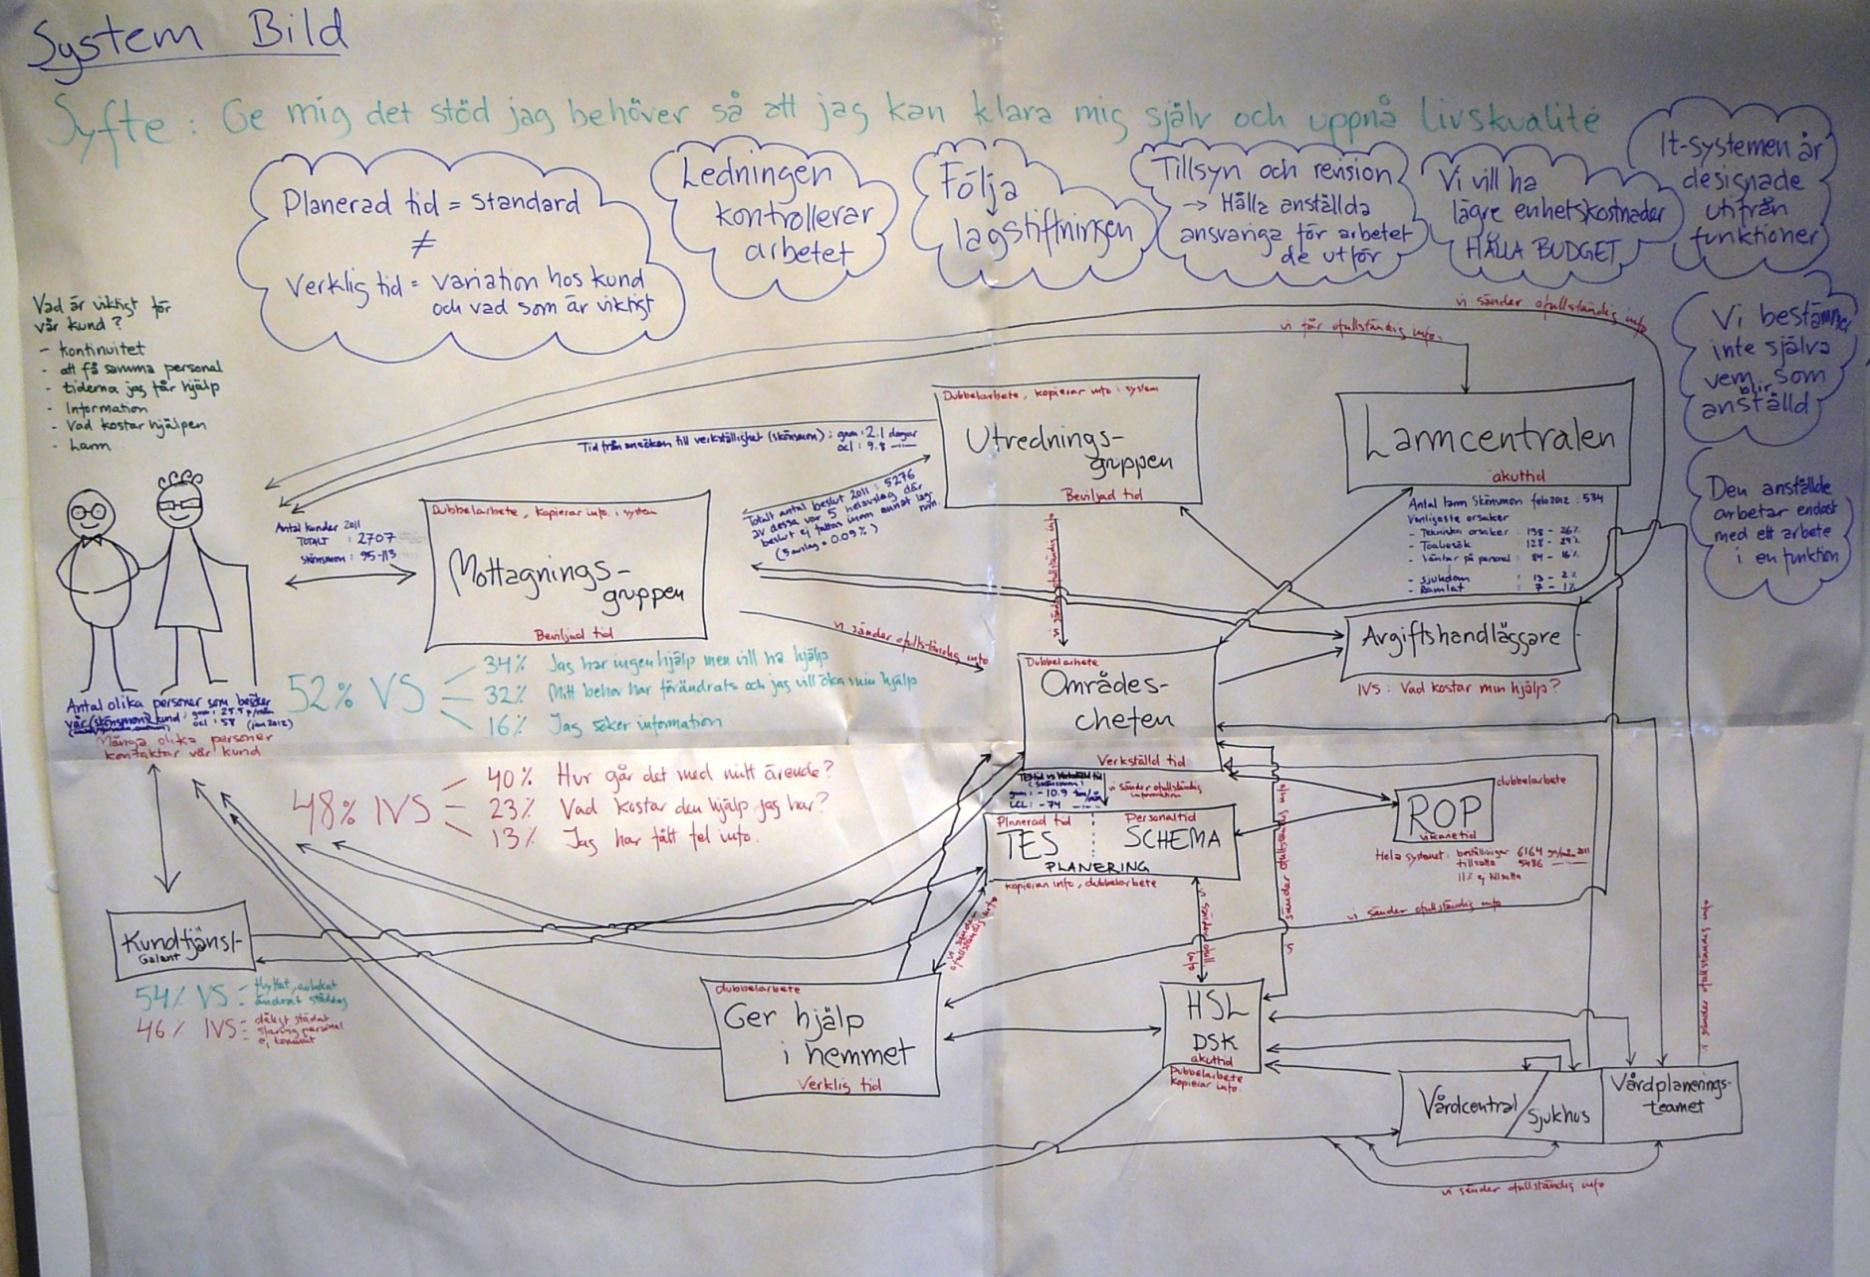 System Bild
Syfte : Ge mig det stöd jag behöver så att jag kan klara mig själv och uppnå livskvalité
Planerad tid = Standard
≠
Verklig tid = variation hos kund
och vad som är viktigt
Ledningen
kontrollerar
arbetet
Följa
lagstiftningen
Tillsyn och revision
→ Hålla anställda
ansvariga för arbetet
de utför
Vi vill ha
lägre enhetskostnader
HÅLLA BUDGET
It-systemen är
designade
utifrån
funktioner
Vi bestämmer
inte själva
vem som
blir
anställd
Den anställde
arbetar endast
med ett arbete
i en funktion
Vad är viktigt för
vår kund ?
- kontinuitet
- att få samma personal
- tiderna jag får hjälp
- Information
- Vad kostar hjälpen
- Larm
vi sänder ofullständig info
vi får ofullständig info.
Antal kunder 2011
TOTALT : 2707
Skönsmon : 95-113
Tid från ansökan till verkställighet (skönsmon) : gräns : 2.1 dagar
öcl : 9.8
Dubbelarbete, kopierar info i system
Utrednings-
gruppen
Beviljad tid
Larmcentralen
akuttid
Antal larm Skönsmon feb 2012 : 534
Vanligaste orsaker
- Tekniska orsaker : 138 - 26%
- Toabesök : 128 - 24%
- Väntar på personal : 84 - 16%
- sjukdom : 13 - 2%
- Ramlat : 7 - 1%
Dubbelarbete, kopierar info. i system
Mottagnings-
gruppen
Beviljad tid
Totalt antal beslut 2011 : 5276
av dessa var 5 helavslag där
beslut ej fattas inom annat lag-
rum.
(5 avslag = 0.09%)
vi sänder ofullständig info
vi sänder ofullständig info
Avgiftshandläggare
IVS : Vad kostar min hjälp?
52% VS
34% Jag har ingen hjälp men vill ha hjälp
32% Mitt behov har förändrats och jag vill öka min hjälp
16% Jag söker information
Antal olika personer som besöker
vår (skönsmons) kund
öcl : 58 (jan 2012)
Många olika personer
kontaktar vår kund
48% IVS
40% Hur går det med mitt ärende?
23% Vad kostar den hjälp jag har?
13% Jag har fått fel info.
Dubbelarbete
Områdes-
chefen
Verkställd tid
vi sänder ofullständig
information
Planerad tid
Personaltid
TES
SCHEMA
PLANERING
kopierar info, dubbelarbete
dubbelarbete
ROP
vikarietid
Hela systemet : beställningar 6164
tillsatta 5486
11% ej tillsatta
vi sänder ofullständig info
vi sänder ofullständig info
vi sänder ofullständig info
vi sänder ofullständig info
vi sänder ofullständig info
Kundtjänst
Galant
54% VS
46% IVS
dåligt städat
dubbelarbete
Ger hjälp
i hemmet
Verklig tid
HSL
DSK
akuttid
Dubbelarbete
kopierar info.
Vårdcentral / Sjukhus
Vårdplanerings-
teamet
vi sänder ofullständig info